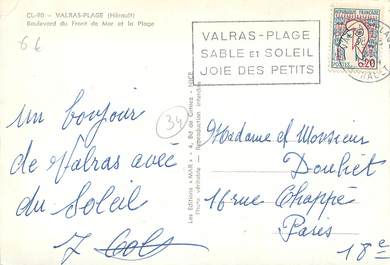 CL-90 - VALRAS-PLAGE (Hérault)
Boulevard du Front de Mer et la Plage
6 €
VALRAS-PLAGE
SABLE et SOLEIL
JOIE DES PETITS
REPUBLIQUE FRANÇAISE
POSTES
0,20
34
un bonjour
de Valras avec
du Soleil
Les Editions "MAR" - 4, Bd de Cimiez - NICE
Photo véritable - Reproduction interdite
Madame et Monsieur
Douliet
16 rue Chappe
Paris
18e